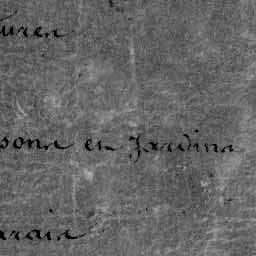 uren
sons en Jardins
arais